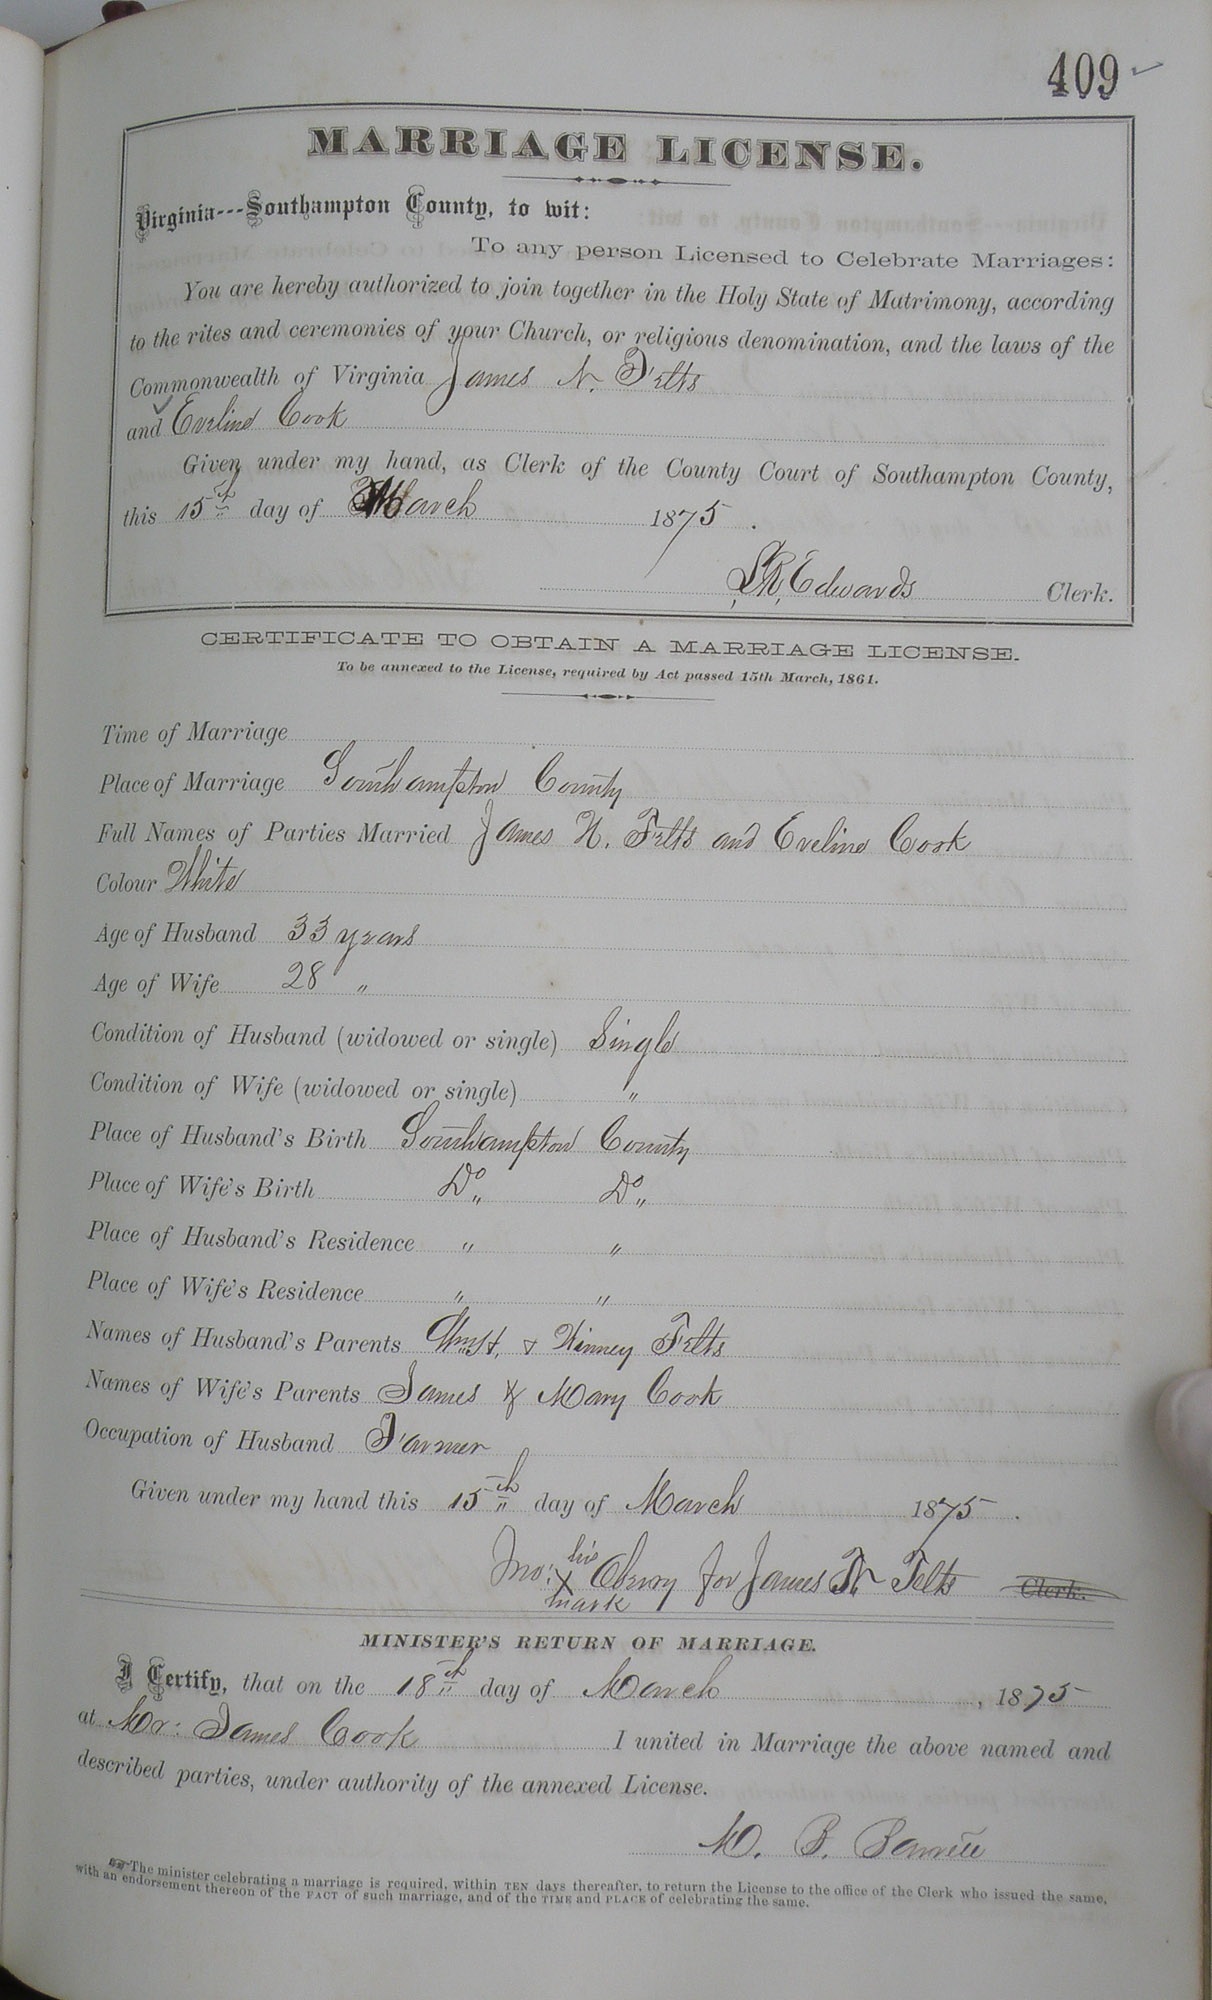 409
MARRIAGE LICENSE.
Virginia---Southampton County, to wit:
To any person Licensed to Celebrate Marriages:
You are hereby authorized to join together in the Holy State of Matrimony, according
to the rites and ceremonies of your Church, or religious denomination, and the laws of the
Commonwealth of Virginia James N. Felts
and Eveline Cook
Given under my hand, as Clerk of the County Court of Southampton County,
this 15th day of March 1875.
L.R. Edwards Clerk.
CERTIFICATE TO OBTAIN A MARRIAGE LICENSE.
To be annexed to the License, required by Act passed 15th March, 1861.
Time of Marriage
Place of Marriage Southampton County
Full Names of Parties Married James N. Felts and Eveline Cook
Colour White
Age of Husband 33 years
Age of Wife 28 "
Condition of Husband (widowed or single) Single
Condition of Wife (widowed or single) "
Place of Husband's Birth Southampton County
Place of Wife's Birth Do " Do "
Place of Husband's Residence " "
Place of Wife's Residence " "
Names of Husband's Parents & Winney Felts
Names of Wife's Parents James & Mary Cook
Occupation of Husband Farmer
Given under my hand this 15th day of March 1875.
Jno: his X mark for James N Felts Clerk.
MINISTER'S RETURN OF MARRIAGE.
I Certify, that on the 18th day of March, 1875
at Mr: James Cook I united in Marriage the above named and
described parties, under authority of the annexed License.
M. B. Barrett
The minister celebrating a marriage is required, within TEN days thereafter, to return the License to the office of the Clerk who issued the same,
with an endorsement thereon of the FACT of such marriage, and of the TIME and PLACE of celebrating the same.